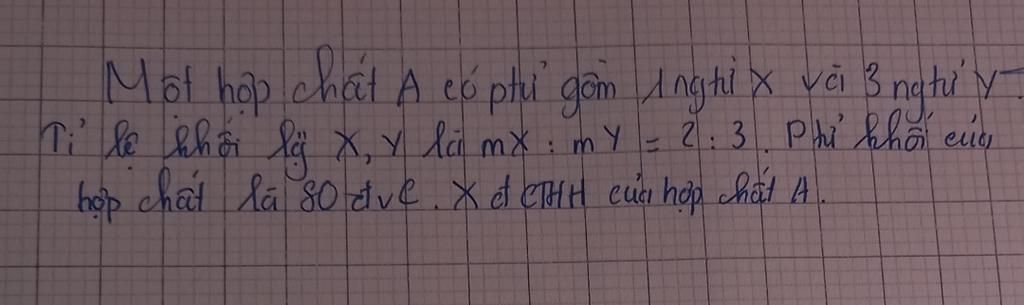 Một hợp chất A có ptử gồm 1 ngtử X với 3 ngtử Y
Tỉ lệ khối lg X, Y là mX : mY = 2 : 3. Ptử khối của
hợp chất là 80 đvC. Xđ CTHH của hợp chất A.